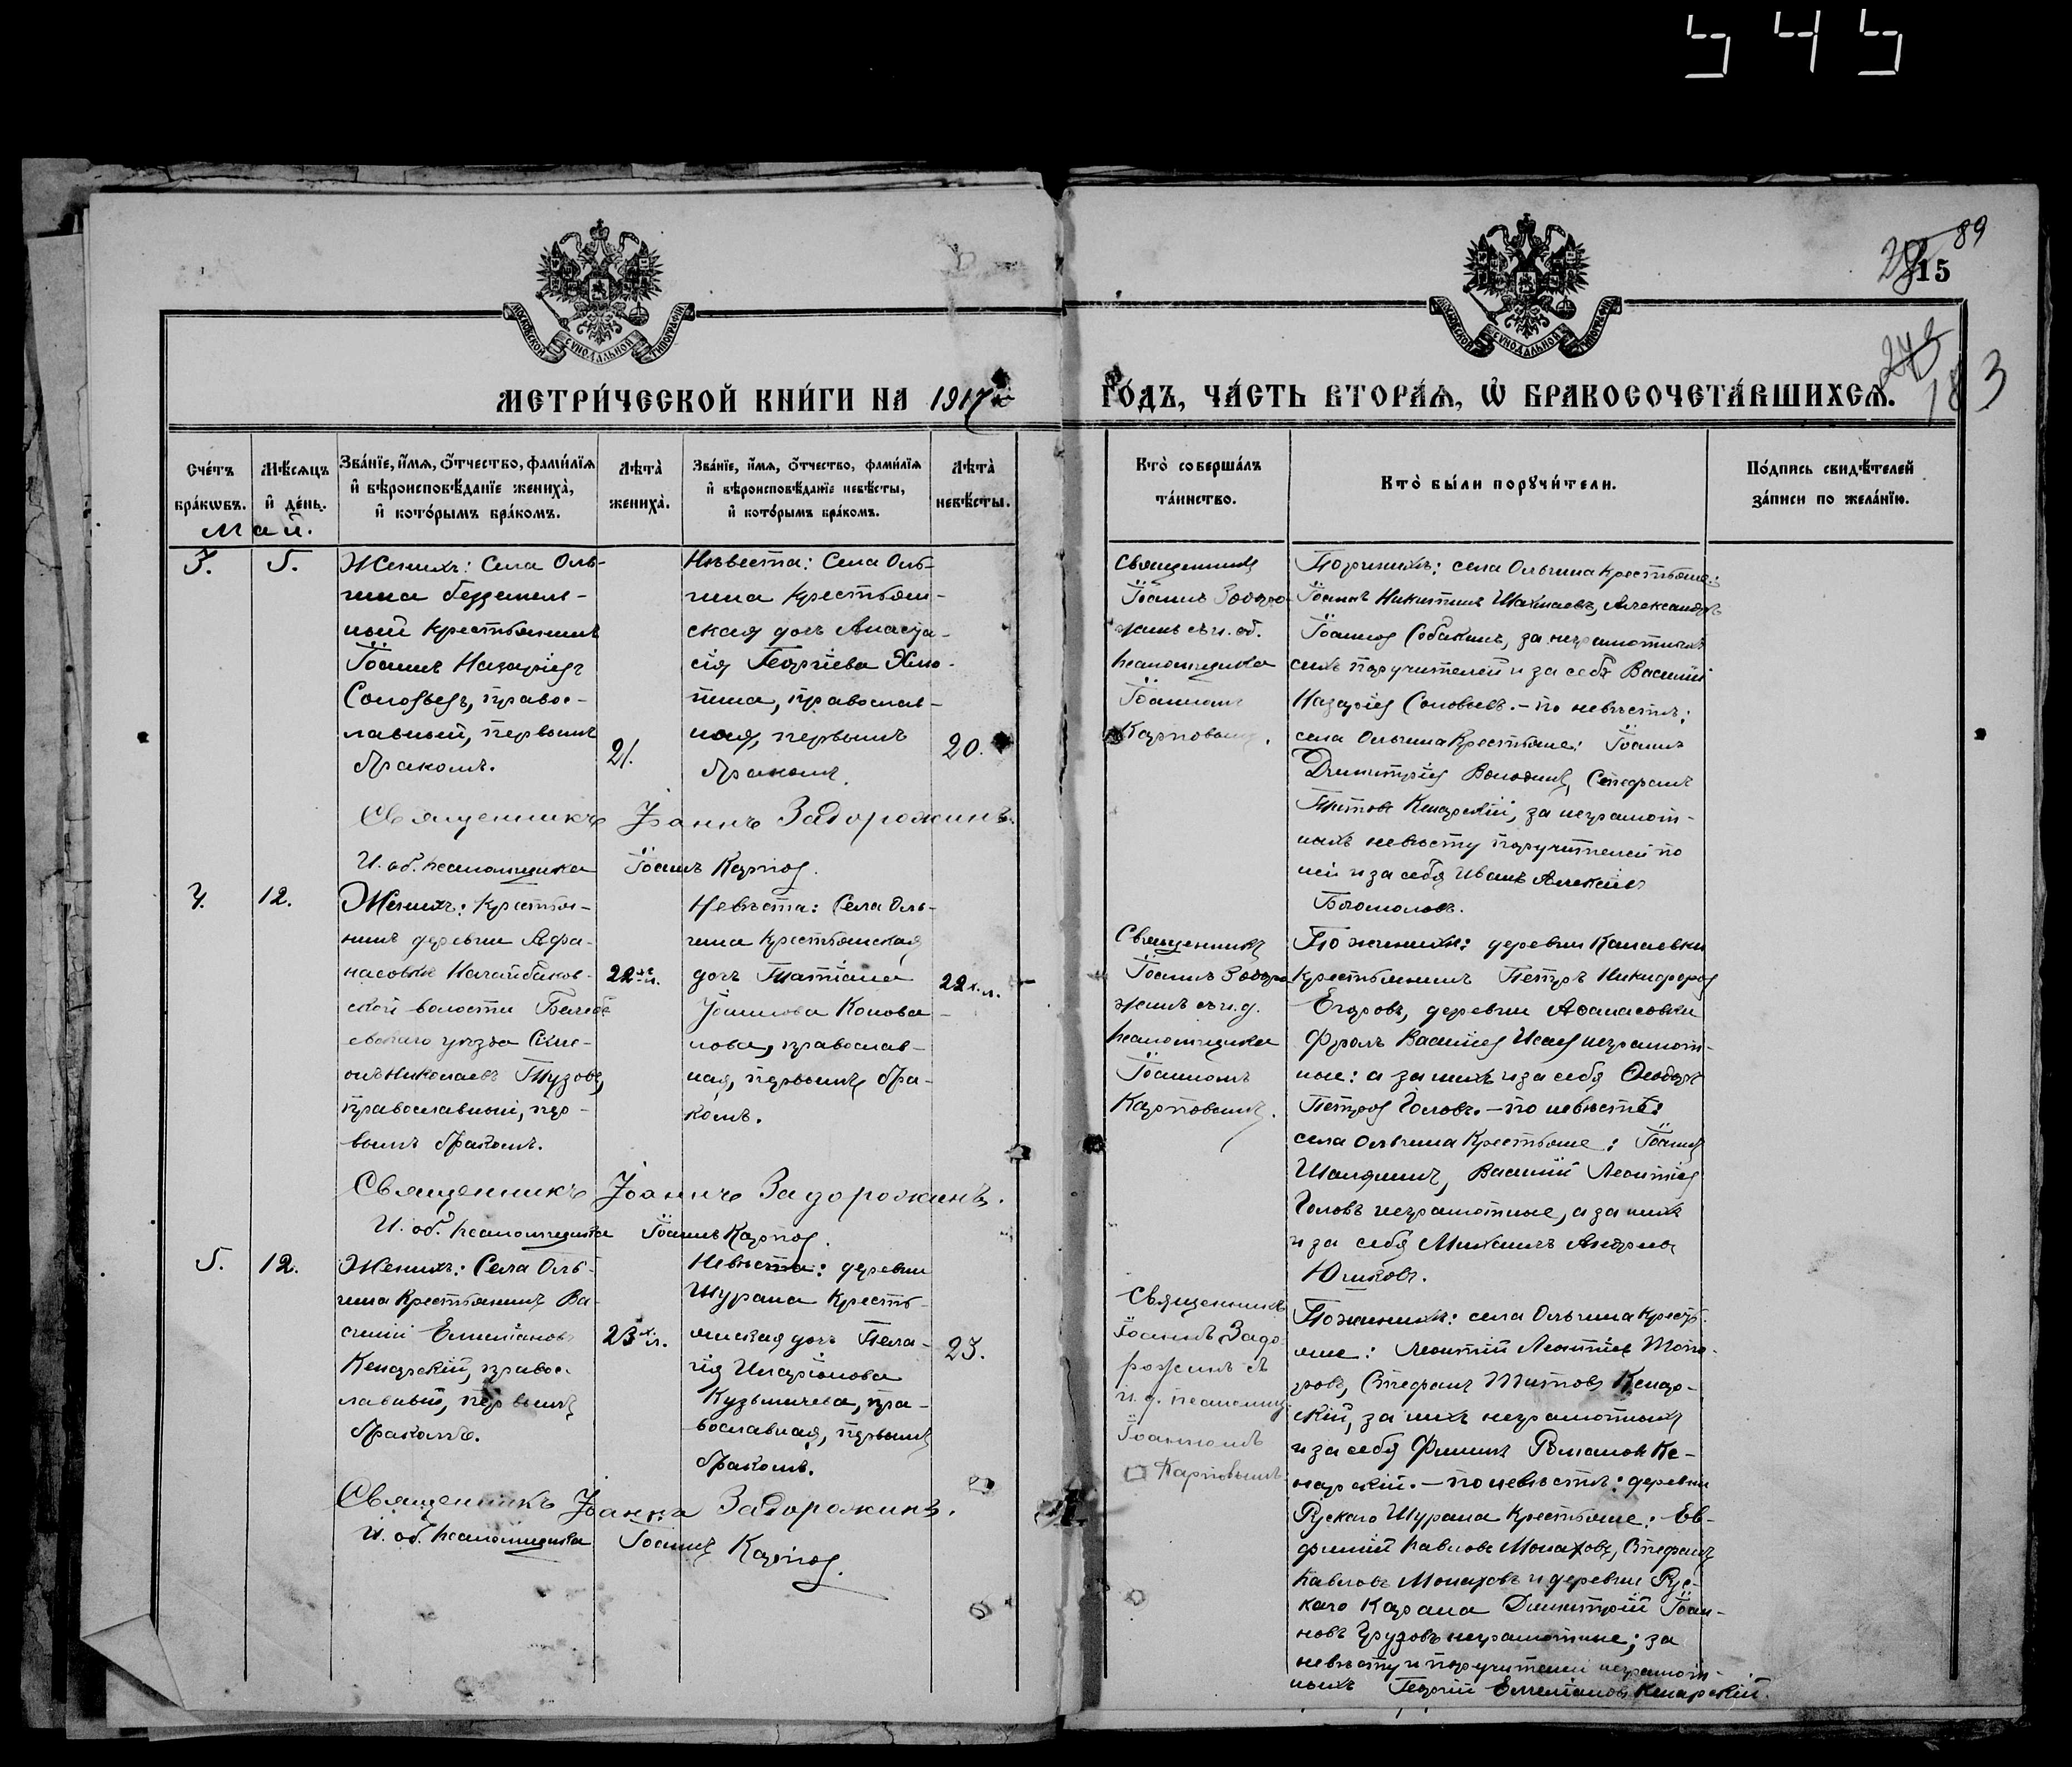 545
89
15
МОСКОВСКОЙ СѴНОДАЛЬНОЙ ТИПОГРАФІИ
МОСКОВСКОЙ СѴНОДАЛЬНОЙ ТИПОГРАФІИ
243
183
МЕТРИ́ЧЕСКОЙ КНИ́ГИ НА 1917 ГО́ДЪ, ЧА́СТЬ ВТОРА́Я, Ѽ БРАКОСОЧЕТА́ВШИХСЯ.
Сче́тъ бра́кѡвъ.
Мѣ́сяцъ и҆ де́нь.
Зва́нїе, и҆́мя, ѻ҆́тчество, фами́лїя и҆ вѣроисповѣ́данїе жениха̀, и҆ кото́рымъ бра́комъ.
Лѣта̀ жениха̀.
Зва́нїе, и҆́мя, ѻ҆́тчество, фами́лїя и҆ вѣроисповѣ́данїе невѣ́сты, и҆ кото́рымъ бра́комъ.
Лѣта̀ невѣ́сты.
Кто̀ соверша́лъ та́инство.
Кто̀ бы́ли порꙋчи́тели.
По́дпись свидѣ́телей за́писи по жела́нїю.
Май.
3.
5.
Женихъ: Села Оль-
гина безземель-
ный крестьянинъ
Іоаннъ Назаріевъ
Соловьевъ, правос-
лавный, первымъ
бракомъ.
21.
Невѣста: Села Оль-
гина Крестьян-
ская дочь Анаста-
сія Георгіева Хлю-
пина, православ-
ная, первымъ
бракомъ.
20.
Священникъ
Іоаннъ Задоро-
жинъ съ и. об.
псаломщика
Іоанномъ
Карповымъ.
села Ольгина Крестьяне:
Іоаннъ Никитинъ Александръ
Іоанновъ Собакинъ, за неграмотныхъ
сихъ поручителей и за себя Василій
Назаріевъ Соловьевъ. – по невѣстѣ:
села Ольгина Крестьяне: Іоаннъ
Димитріевъ Володинъ, Стефанъ
Титовъ Кенарскій, за неграмот-
ныхъ невѣсту поручителей по
ней и за себя Иванъ Алексѣевъ
Богомоловъ.
Священникъ Іоаннъ Задорожинъ.
И. об. псаломщика Іоаннъ Карповъ.
4.
12.
Женихъ: Крестья-
нинъ деревни Афа-
насовки
ской волости Белебе-
евскаго уѣзда
Николаевъ Тузовъ,
православный, пер-
вымъ бракомъ.
22 л.
Невѣста: Села Оль-
гина Крестьянская
дочь Татіана
Іоаннова Конова-
лова, православ-
ная, первымъ бра-
комъ.
22 л.
Священникъ
Іоаннъ Задоро-
жинъ съ и. д.
псаломщика
Іоанномъ
Карповымъ.
По женихѣ: деревни
Крестьянинъ Петръ Никифоровъ
Егоровъ, деревни Афанасовки
Фролъ Василіевъ Исаевъ неграмот-
ные: а за нихъ и за себя Ѳеодоръ
Петровъ Головъ. – по невѣстѣ:
села Ольгина Крестьяне: Іоаннъ
Шаляпинъ, Василій Леонтіевъ
Головъ неграмотные, а за нихъ
и за себя Михаилъ Андреевъ
Юшковъ.
Священникъ Іоаннъ Задорожинъ.
И. об. псаломщика Іоаннъ Карповъ.
5.
12.
Женихъ: Села Оль-
гина Крестьянинъ Ва-
силій Емеліановъ
Кенарскій, правос-
лавный, первымъ
бракомъ.
23 л.
Невѣста: деревни
Шурана Кресть-
янская дочь Пела-
гія Иларіонова
Кузьмичева, пра-
вославная, первымъ
бракомъ.
23.
Священникъ
Іоаннъ Задо-
рожинъ съ
и. д. псаломщ.
Іоанномъ
Карповымъ
По женихѣ: села Ольгина Кресть-
яне: Леонтій Леонтіевъ Топо-
ровъ, Стефанъ Титовъ Кенар-
скій, за нихъ неграмотныхъ
и за себя Филипъ Романовъ Ке-
нарскій. – по невѣстѣ: деревни
Рускаго Шурана Крестьяне: Ев-
фимій Павловъ Монаховъ, Стефанъ
Павловъ Монаховъ и деревни Рус-
каго Карана Димитрій Іоан-
новъ Грузовъ неграмотные; за
невѣсту и поручителей неграмот-
ныхъ Георгій Емеліановъ Кенарскій.
Священникъ Іоаннъ Задорожинъ.
И. об. псаломщика Іоаннъ Карповъ.